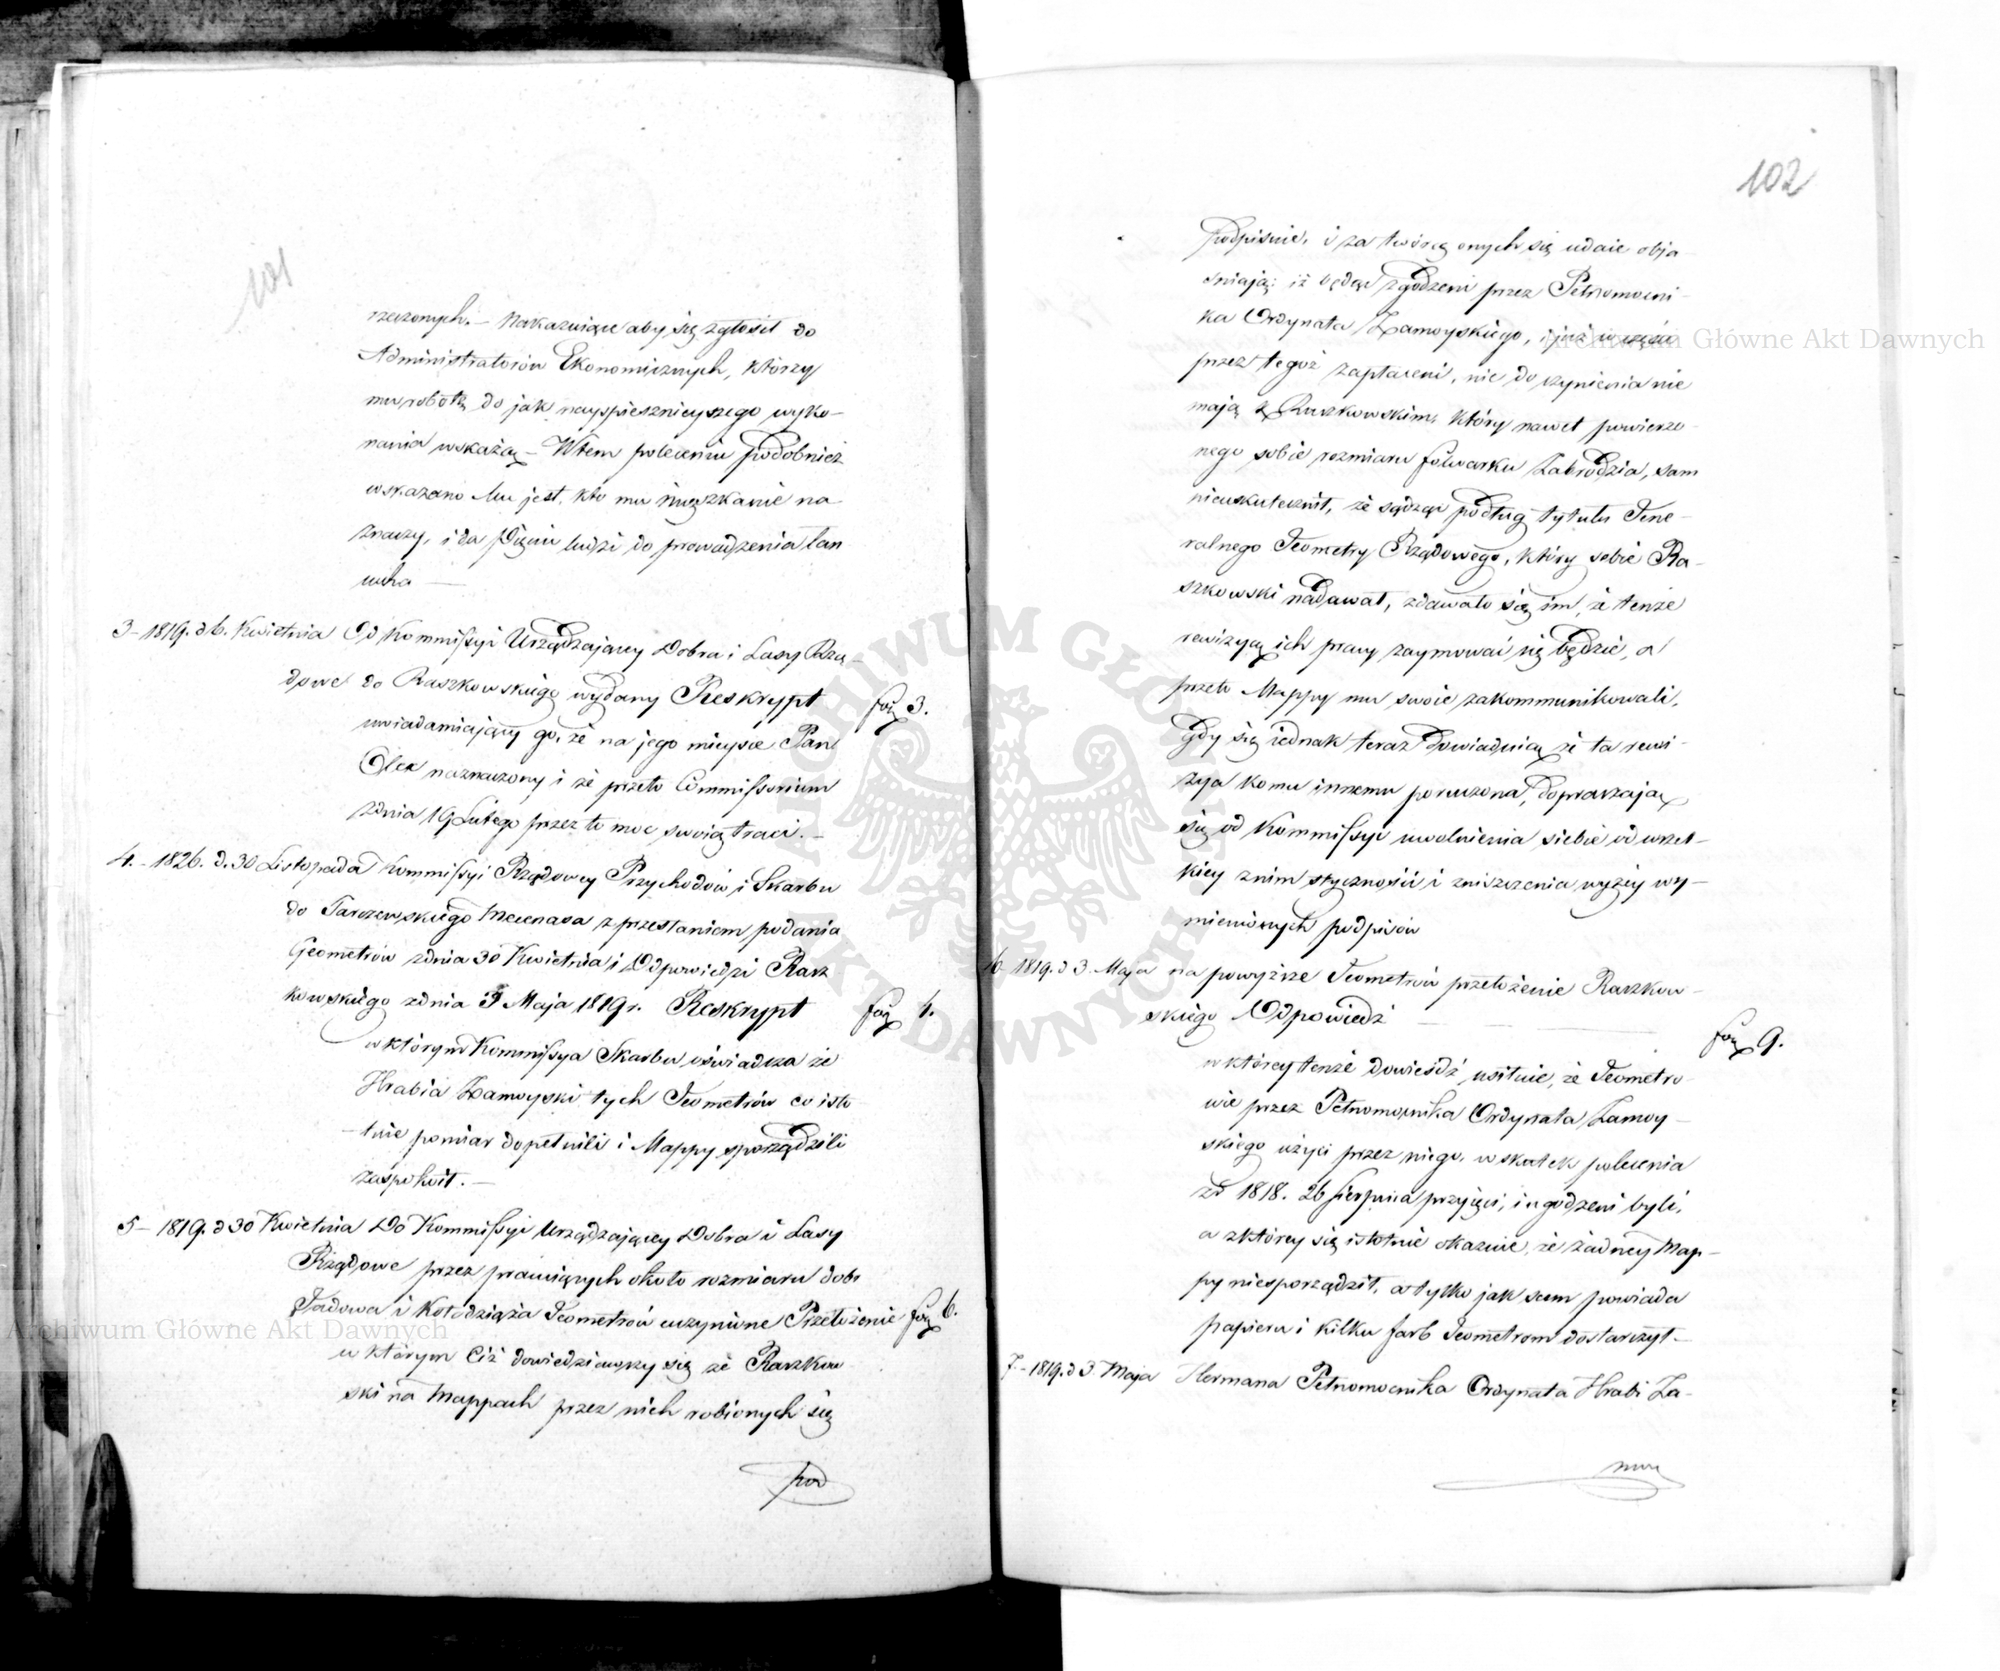 101
rzeczonych. – Nakazuiące aby się zgłosił do
Administratorów Ekonomicznych, którzy
mu robotę do jak nayspiesznieyszego wyko-
nania wskażą – W tem poleceniu podobnież
wskazano Mu jest, kto mu mięszkanie na
znaczy, i da Dzięń ludzi do prowadzenia łan
cucha —
3 – 1819. d 6. Kwietnia Od Kommissyi Urządzającey Dobra i Lasy Rzą-
dowe do Raszkowskiego wydany Reskrypt
fog 3.
uwiadamiający go, że na jego mieysce Pan
naznaczony i że przeto Commissorium
z dnia 19 Lutego przez to moc swoię traci. –
4. – 1826. d. 30 Listopada Kommissyi Rządowey Przychodów i Skarbu
do Tarczewskiego Mecenasa z przesłaniem podania
Geometrów z dnia 30 Kwietnia i Odpowiedzi Rasz
kowskiego z dnia 3 Maja 1819 r. Reskrypt
fog 4.
w którym Kommissya Skarbu oświadcza że
Hrabia Zamoyski tych Jeometrów co isto
tnie pomiar dopełnili i Mappy sporządzili
zaspokoił. –
5 – 1819. d 30 Kwietnia Do Kommissyi Urządzaiącey Dobra i Lasy
Rządowe przez pracuiących około rozmiaru dóbr
Żadowa i Kołodziąża Jeometrów uczynione Przełożenie fog 6.
w którym Ciż dowiedziawszy się że Raszkow
ski na Mappach przez nich robionych się
pod
102
podpisuie, i za twórcę onych się udaie obja-
śniają; iż będąc zgodzeni przez Pełnomocni-
ka Ordynata Zamoyskiego, i już w części
przez tegoż zapłaceni, nic do czynienia nie
mają z Raszkowskim, który nawet powierzo-
nego sobie rozmiaru folwarku Zabrodzia, sam
nieuskutecznił, że sądząc podług tytułu Jene-
ralnego Jeometry Rządowego, który sobie Ra-
szkowski nadawał, zdawało się im, że tenże
rewizyą ich pracy zaymować się będzie, a
przeto Mappy mu swoie zakommunikowali,
Gdy się iednak teraz dowiaduią że ta rewi-
zya komu innemu poruczona, dopraszają
się od Kommissyi uwolnienia siebie od wszel-
kiey z nim styczności i zniszczenia wyżey wy-
mienionych podpisów
6 – 1819. d 3. Maja na powyższe Jeometrów przełożenie Raszkow-
skiego Odpowiedź —
fog 9.
w którey tenże dowieśdź usiłuie, że Jeometro-
wie przez Pełnomocnika Ordynata Zamoy-
skiego użyci przez niego, w skutek polecenia
zd 1818. 26 Sierpnia przyięci, i ugodzeni byli,
a z którey się istotnie okazuie, że żadney Map-
py niesporządził, a tylko jak sam powiada
papieru i kilku farb Jeometrom dostarczył –
7. – 1819. d 3. Maja Hermana Pełnomocnika Ordynata Hrabi Za-
Archiwum Główne Akt Dawnych
Archiwum Główne Akt Dawnych
ARCHIWUM GŁÓWNE AKT DAWNYCH